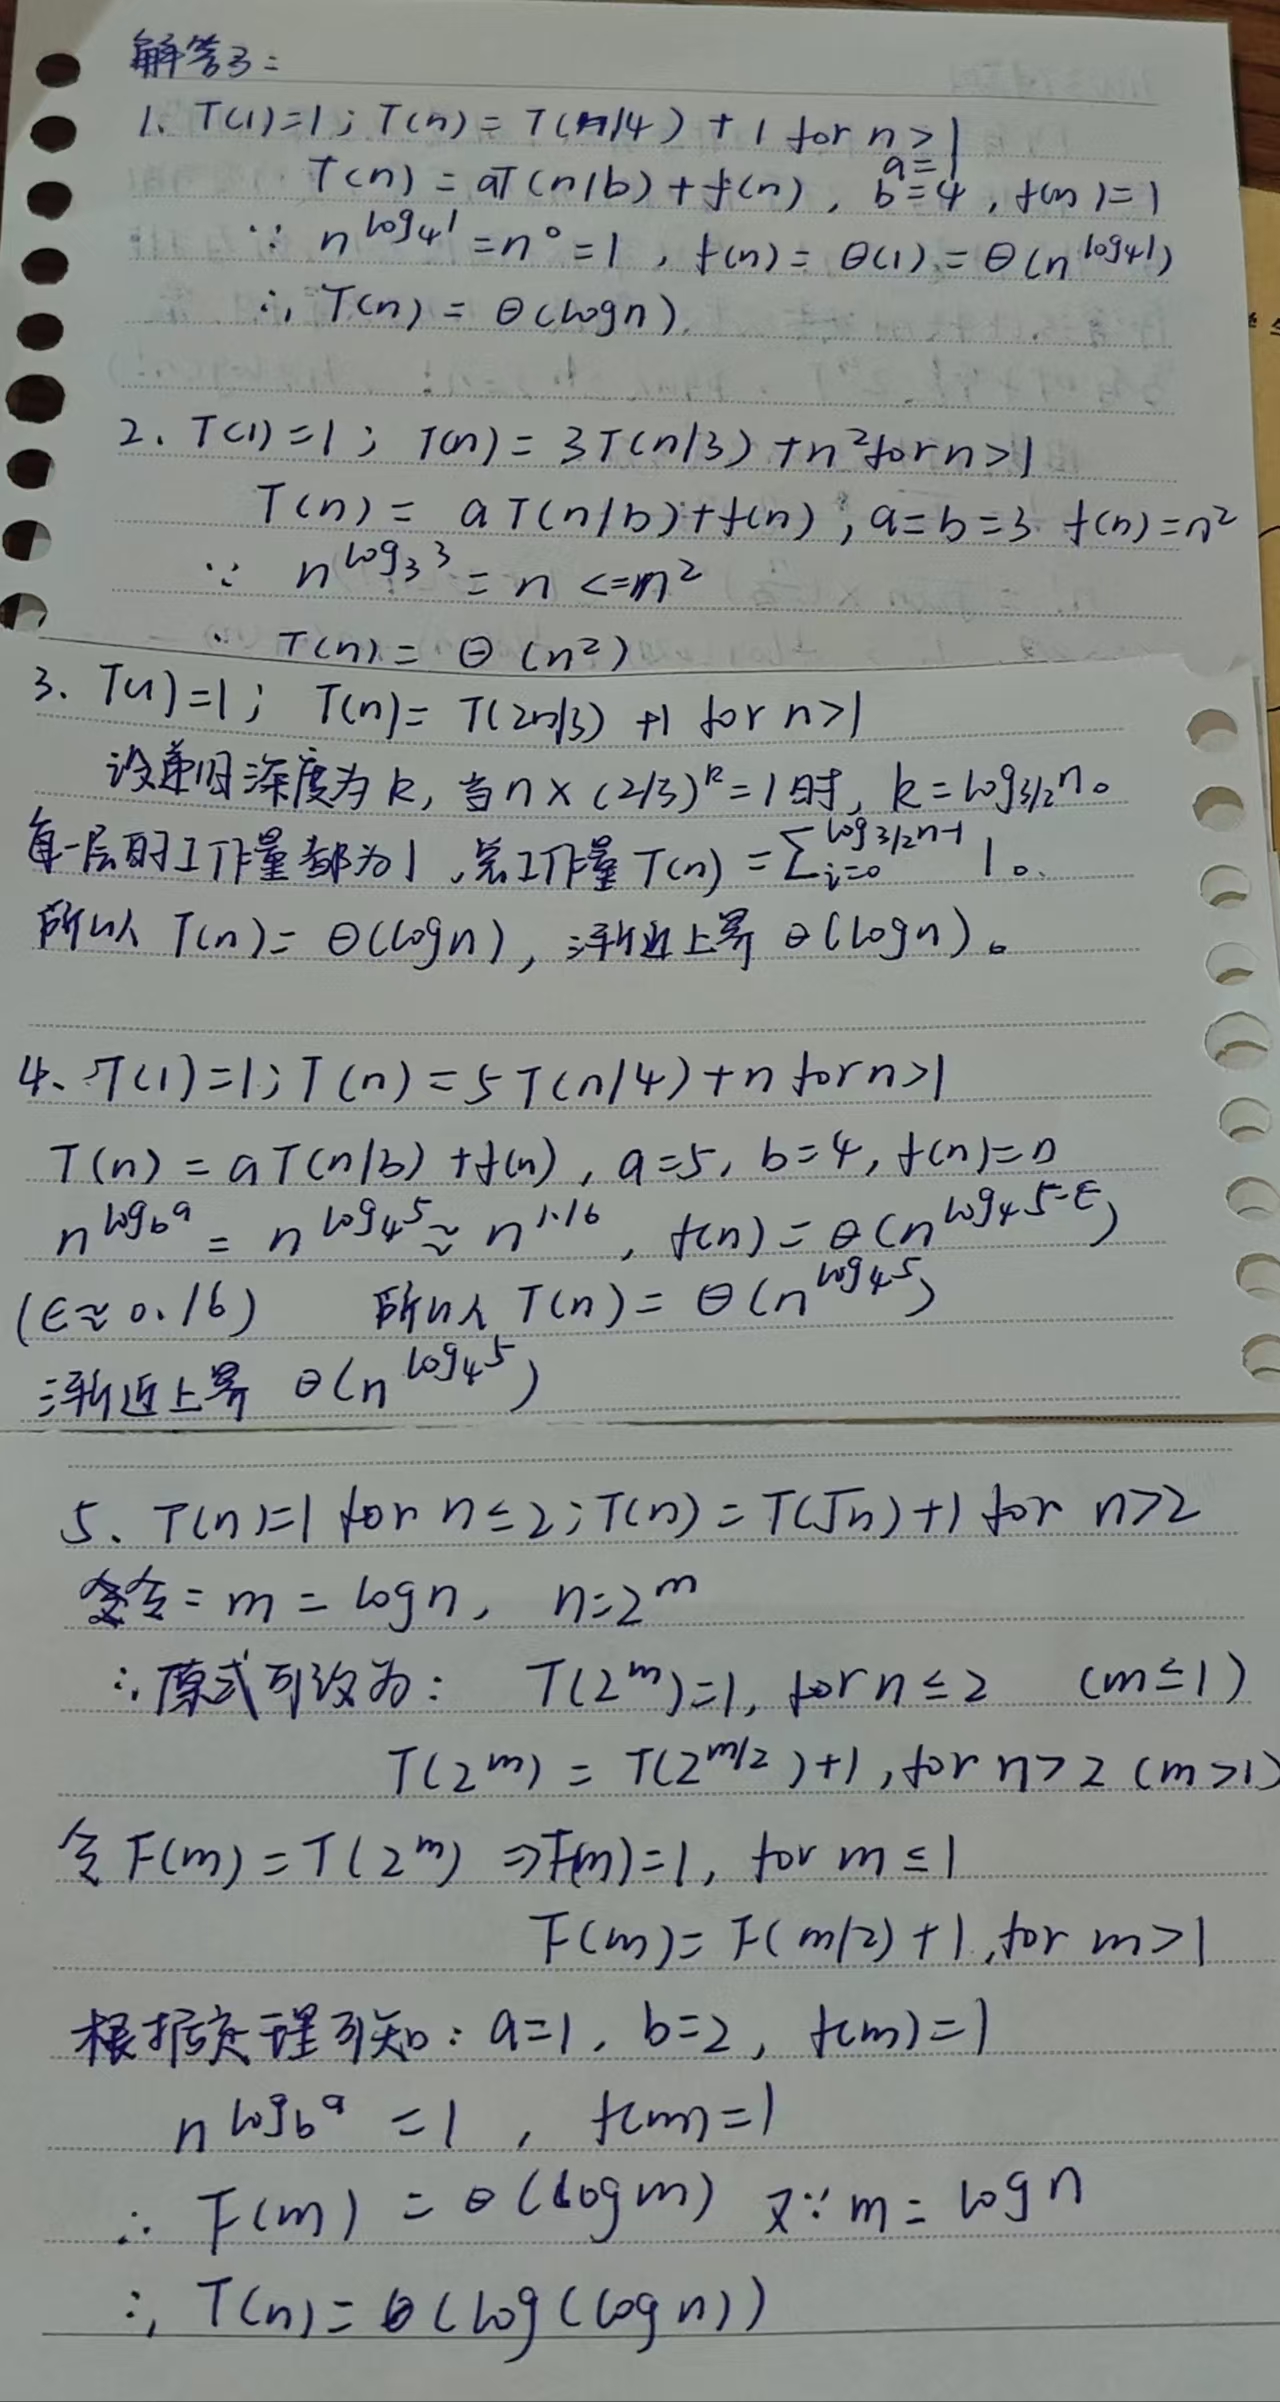 解答3:
1. T(1)=1; T(n)=T(n/4)+1 for n>1
T(n)=aT(n/b)+f(n), a=1 b=4, f(n)=1
∵ n^{log_4 1}=n^0=1, f(n)=θ(1)=θ(n^{log_4 1})
∴ T(n)=θ(logn)
2. T(1)=1; T(n)=3T(n/3)+n^2 for n>1
T(n)=aT(n/b)+f(n), a=b=3 f(n)=n^2
∵ n^{log_3 3}=n <=n^2
∵ T(n)=θ(n^2)
3. T(1)=1; T(n)=T(2n/3)+1 for n>1
设递归深度为k, 当n×(2/3)^k=1时, k=log_{3/2}n。
每一层的工作量都为1, 总工作量T(n)=∑_{i=0}^{log_{3/2}n-1} 1。
所以 T(n)=θ(logn), 渐近上界 θ(logn)。
4. T(1)=1; T(n)=5T(n/4)+n for n>1
T(n)=aT(n/b)+f(n), a=5, b=4, f(n)=n
n^{log_b a}=n^{log_4 5}≈n^{1.16}, f(n)=θ(n^{log_4 5-ε})
(ε≈0.16) 所以 T(n)=θ(n^{log_4 5})
渐近上界 θ(n^{log_4 5})
5. T(n)=1 for n≤2; T(n)=T(√n)+1 for n>2
令: m=logn, n=2^m
∴ 原式可改为: T(2^m)=1, for n≤2 (m≤1)
T(2^m)=T(2^{m/2})+1, for n>2 (m>1)
令 F(m)=T(2^m) ⇒F(m)=1, for m≤1
F(m)=F(m/2)+1, for m>1
根据定理可知: a=1, b=2, f(m)=1
n^{log_b a}=1, f(m)=1
∴ F(m)=θ(logm) 又∵ m=logn
∴ T(n)=θ(log(logn))